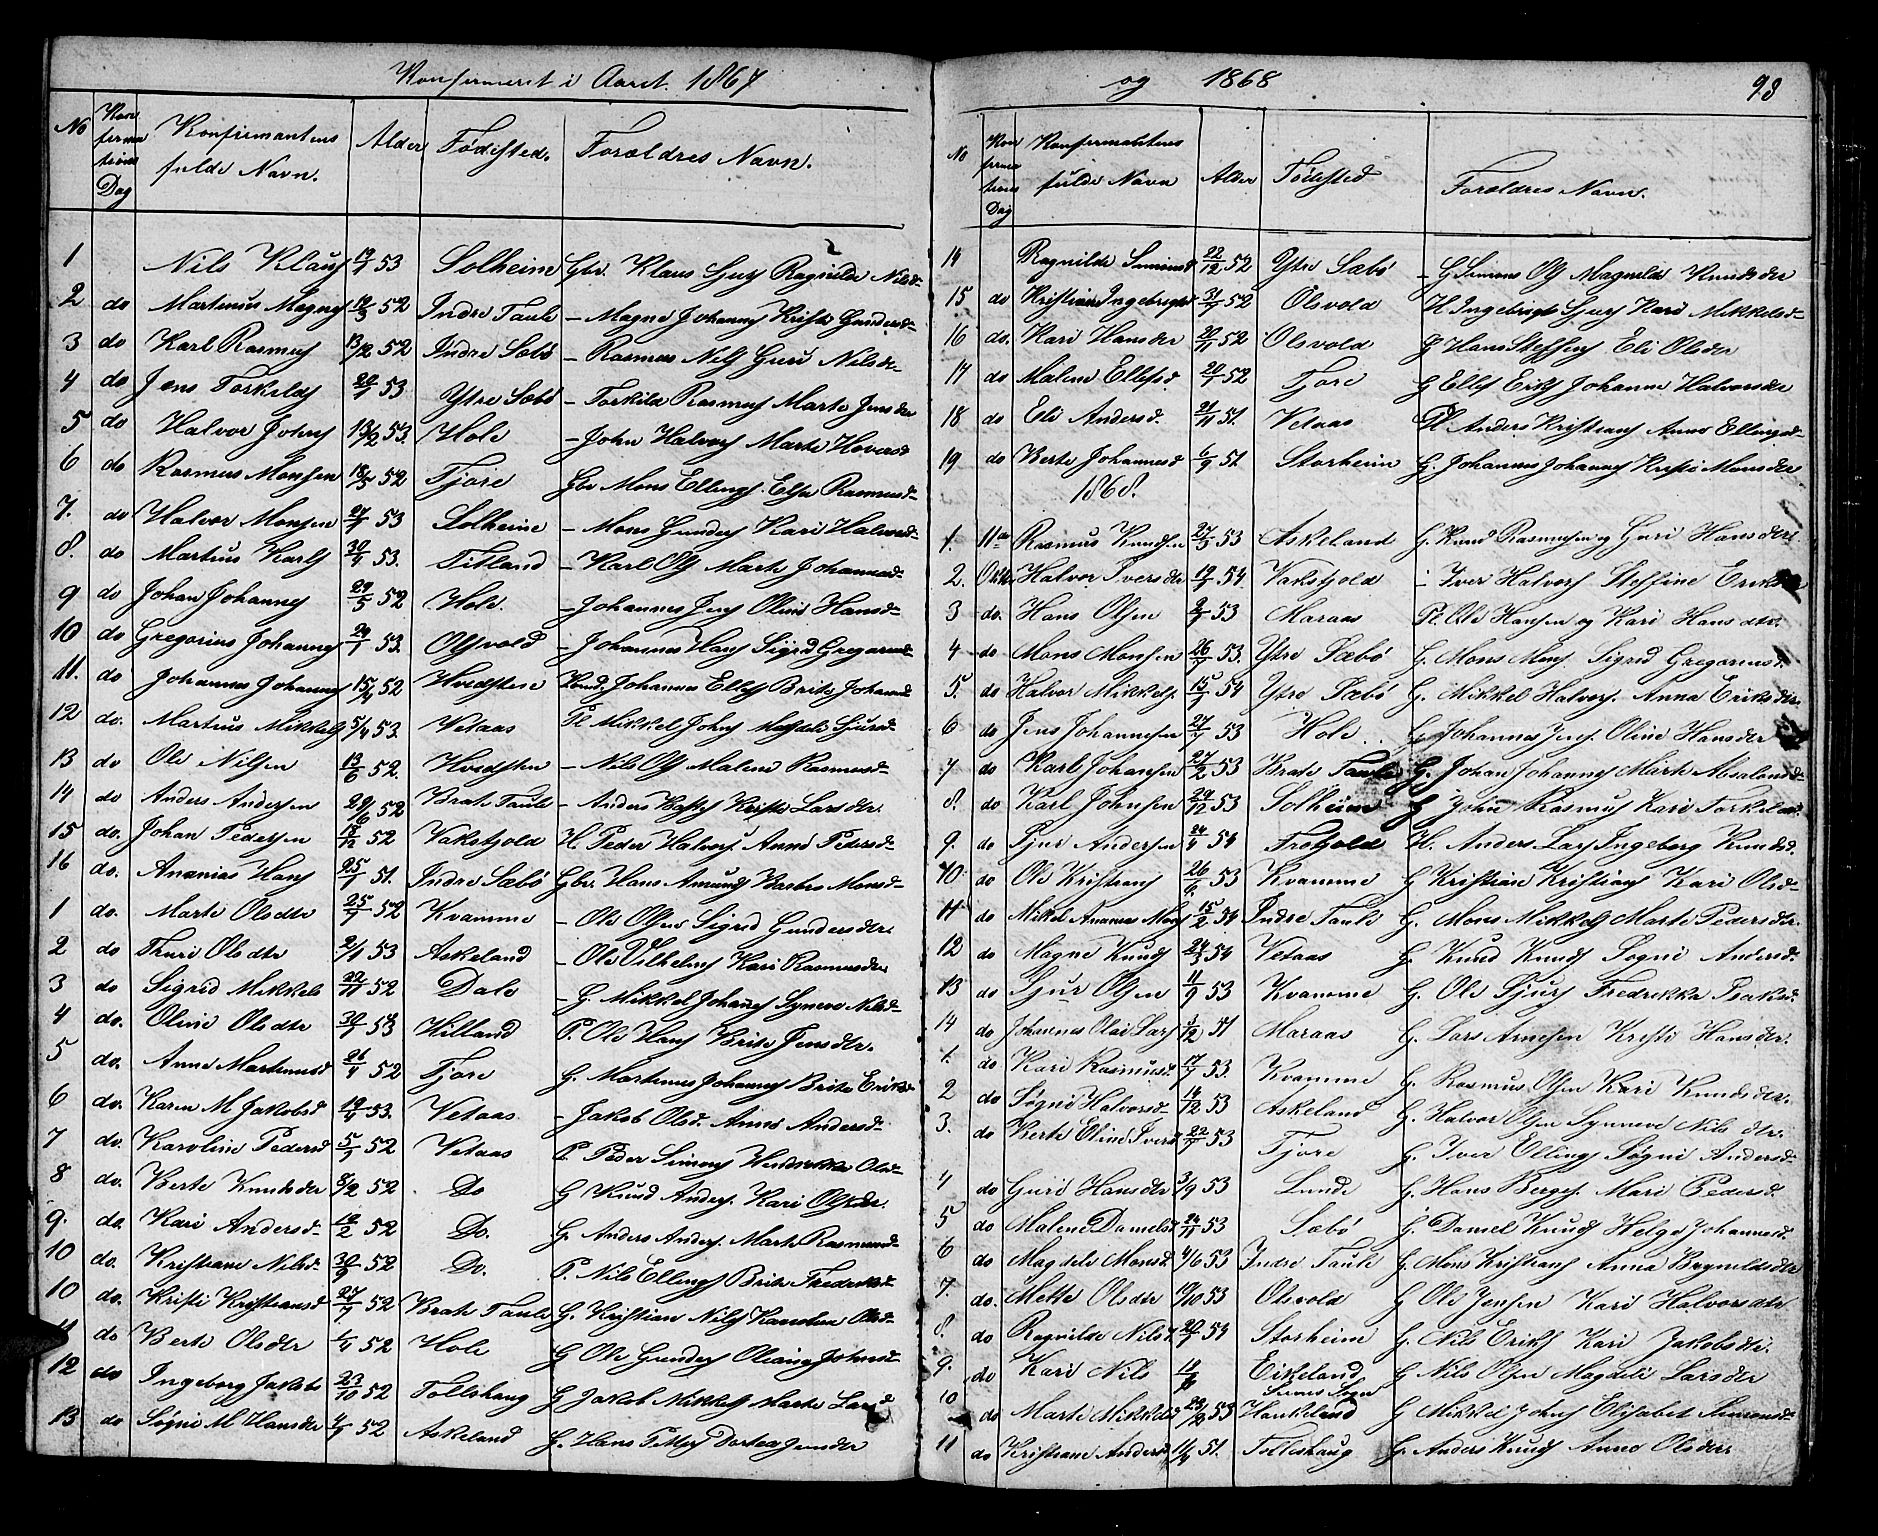 Konfirmeret i Aaret 1867
No Konfirmations Dag Konfirmantens fulde Navn. Alder Fødested. Forældres Navn.
1 Nils Klaus 19/7 53 Solheim Gbr. Klaus Sjurs Ragnilde Nilsd
2 do Martinus Magnes 52 Indre Taule – Magne Johannes Kristi Gundersd
3 do Karl Rasmus 13/12 52 Indre Sæbø – Rasmus Nils Guri Nilsdr
4 do Jens Torkilds 53. Ytre Sæbø – Torkild Rasmus Marte Jensdr
5 do Halvor Johns 13/2 53. Hole – John Halvors Marte
6 do Rasmus Monsen 18/5 52 Tjore Gbr Mons Ellings. Else Rasmusd
7. do Halvor Monsen 27/7 53 Solheim – Mons Gunders Kari Halvorsd
8. do Martius Karls 30/4 53. Titland – Karl Ols Marte Johannesd
9 do Johan Johannes 29/5 52 Hole. – Johannes Jens Oline Hansd
10 do Gregorius Johannes 53. Olsvold – Johannes Hans Sigrid Gregoriusd
11. do Johannes Johannes 15/4 52 Hvidsten Johannes Ellefs Brite Johannesd
12 do. Martius Mikkels 5/4 53. Vetaas Pl Mikkel Johns Magdele Sjursd
13 do Ole Nilsen 13/6 52. Hvidsten – Nils Ols Malene Rasmusd
14 do Anders Andersen 29/6 52 Brate Taule – Anders Kristi Larsdtr.
15 do. Johan Pedersen 18/12 52 Vakstjold H. Peder Halvors. Anne Pedersd
16 do. Ananias Hans 25/7 51. Indre Sæbø Gbr. Hans Amunds Barbro Monsd
1 do. Marte Olsdtr 25/7 52 Kvamme – Ole Olsen Sigrid Gundersdtr.
2 do Thuri Olsdtr 2/1 53 Askeland – Ole Vilhelms Kari Rasmusdtr
3 do Sigrid Mikkels 22/11 52 Dale – G. Mikkel Johans Synneve Nilsd
4 do. Oline Olsdtr 53 Hilland P. Ole Hans Brite Jensdtr.
5 do. Anne Martinusd 21/4 52 Tjore G. Martinus Johannes Brite Eriksd
6 do. Karen M Jakobsd 19/4 53. Vetaas. – Jakob Olsd. Anne Andersd.
7 do. Karoline Pedersd 5/7 52 Vetaas P. Peder Simons Hendrikke Olsd
8 do. Berte Knutsdtr 8/12 52 Do G Knud Anders. Kari Olsdtr.
9. do. Kari Andersd. 19/2 52 Do. G. Anders Anders. Marte Rasmusd
10 do. Kristiane Nilsd. 30/9 52 Do. P. Nils Ellings Brite Frederiksd
10 do. Kristi Kristiansd 27/7 52 Brate Taule G. Kristian Nils Karoline Olsd
11 do Berte Olsdtr 52 Hole G Ole Gunders Oliane Johnsd
12 do Ingeborg Jakobs 23/10 52 Tolleshaug G Jakob Mikkels Marte Larsd
13 do Søgni M Hansdtr 52 Askeland G. Hans Petters Dortea Jensdtr
og 1868 98
No Konfirmations Dag Konfirmantens fulde Navn Alder Fødested Forældres Navn.
14 Ragnilde Simonsd 22/12 52 Ytre Sæbø – G Simons Ols Magnilde Knudsdtr
15 do Kristiane Ingebrigtsd 52 Olsvold H Ingebrigt Sjurs Kari Mikkelsd
16 do. Kari Hansdtr 20/11 52 Olsvold G Hans Steffens Eli Olsdtr
17 do Malene Ellefsd. 20/1 52 Tjore G Ellef Eriks Johanne Halvorsdtr
18 do Eli Andersd. 21/11 51. Vetaas Pl. Anders Kristians Anne Ellingsd
19 do Berte Johannesd 6/9 51 Storheim G. Johannes Johannes Kristi Monsdtr
1868.
1. 11te Rasmus Knudsen 27/3 53 Askeland G. Knud Rasmussen og Guri Hansdtr
2. Oktbr Halvor Iversdtr 19/7 54 Vakstjold – Iver Halvors Steffine Eriksd
3 do. Hans Olsen 53 Maraas Pl. Ole Hansen og Kari Hansdtr.
4 do Mons Monsen 26/7 53. Ytre Sæbø G. Mons Mons. Sigrid Gregoriusd.
5. do Halvor Mikkels. 15/3 54 Ytre Sæbø G. Mikkel Halvors. Anna Eriksdtr.
6 do Jens Johannesen 27/7 53 Hole G Johannes Jens. Oline Hansdtr
7 do Karl Johansen 27/2 53 Brate Taule G. Johan Johannes Marte
8. do Karl Johnsen 29/12 53 Solheim G John Rasmus Kari Torkelsd.
9. do Sjur Andersen 24/4 54 Trotjold H. Anders Lars Ingeborg Knudsd.
10. do Ole Kristians 26/6. 53 Kvamme G Kristian Kristians Kari Olsd
11 do Mikkel Ananias Mons 15/2 54 Indre Taule G. Mons Mikkels Marte Pedersdtr.
12 do Magne Knuds 24/3 54 Vetaas G. Knud Knuds Søgni Andersd.
13 do Sjur Olsen 11/9 53 Kvamme G. Ole Sjurs Fredrikke Isaksd.
14 do Johannes Olai Lars 1/12 51 Maraas G. Lars Arnesen Kristi Hansdtr.
1. do Kari Rasmusd. 17/7 53. Kvamme G. Rasmus Olsen Kari Knudsdtr.
2 do Søgni Halvorsd 14/12 53 Askeland G. Halvor Olsen Synneve Nilsdtr.
3. do Berte Oline Iversd 22/7 53 Tjore G. Iver Ellings Søgni Andersd
4 do Guri Hansdtr 3/9 53 Lunde G. Hans Berges. Mari Pedersd.
5 do Malene Danielsd 24/11 53 Sæbø G. Daniel Knuds Helge Johannesd
6 do Magdele Monsd. 4/6 53 Indre Taule G. Mons Kristians Anna Brynildsdtr
7. do. Mette Olsdtr 9/10 53 Olsvold G Ole Jensen Kari Halvorsdtr
8. do Ragnilde Nilsd. 20/7 54 Storheim G. Nils Eriks Kari Jakobsdtr.
9. do Kari Nils Eikeland G Nils Olsen Magdele Larsdtr
10 do Marte Mikkelsd 53 Haukeland G Mikkel Johns Elisabet Simonsd
11 do Kristiane Andersd 14/4 51. Tolleshaug G. Anders Knuds Anne Olsdtr